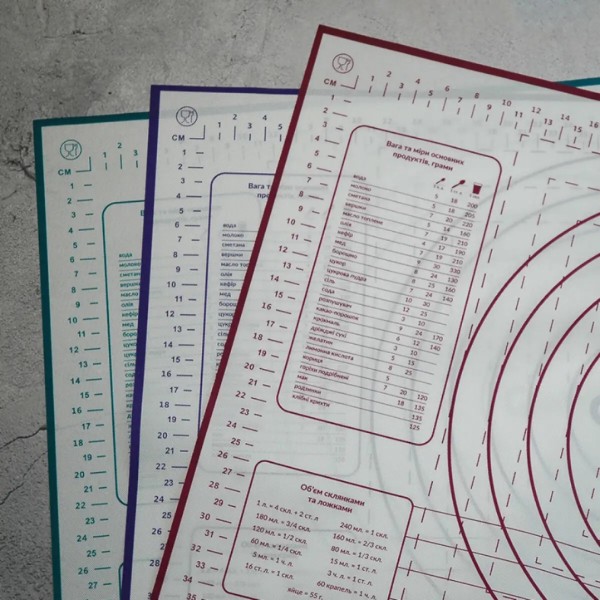 СМ
1 2 3 4 5 6 7 8 9 10 11 12 13 14 15 16
1
2
3
4
5
6
7
8
9
10
11
12
13
14
15
16
17
18
19
20
21
22
23
24
25
26
27
28
29
30
31
32
33
34
35
Вага та міри основних
продуктів, грами
вода 5 18 200
молоко 5 18 205
сметана 7 20 220
вершки 5 14 180
масло топлене 4 17 210
олія 4 17 190
кефір 7 19 210
мед 9 30 330
борошно 8 24 130
цукор 8 25 160
цукрова пудра 7 24 140
сіль 10 30
сода 12 25
розпушувач 3 10
какао-порошок 9 24 170
крохмаль 6 12 140
дріжджі сухі 3 10
желатин 5 15
лимонна кислота 8 25
кориця 5
горіхи подрібнені 7 20 120
мак 18 135
родзинки 135
хлібні крихти 125
Об'єм склянками
та ложками
1 л. = 4 скл. + 2 ст. л
180 мл. = 3/4 скл.
120 мл. = 1/2 скл.
60 мл. = 1/4 скл.
5 мл. = 1 ч. л.
16 ст. л. = 1 скл.
240 мл. = 1 скл.
160 мл. = 2/3 скл.
80 мл. = 1/3 скл.
15 мл. = 1 ст. л.
3 ч. л = 1 ст. л.
60 крапель = 1 ч. л.
яйце = 55 г.
СМ
1 2 3 4
1
2
3
4
5
6
7
8
9
10
11
12
13
14
15
16
17
18
19
20
21
22
23
24
25
26
27
28
29
30
31
Вага
вода
молоко
сметана
вершки
масло
олія
кефір
мед
СМ
1 2 3
1
2
3
4
5
6
7
8
9
10
11
12
13
14
15
16
17
18
19
20
21
22
23
24
25
26
27
вода
молоко
сметана
вершки
масло
олія
кефір
мед